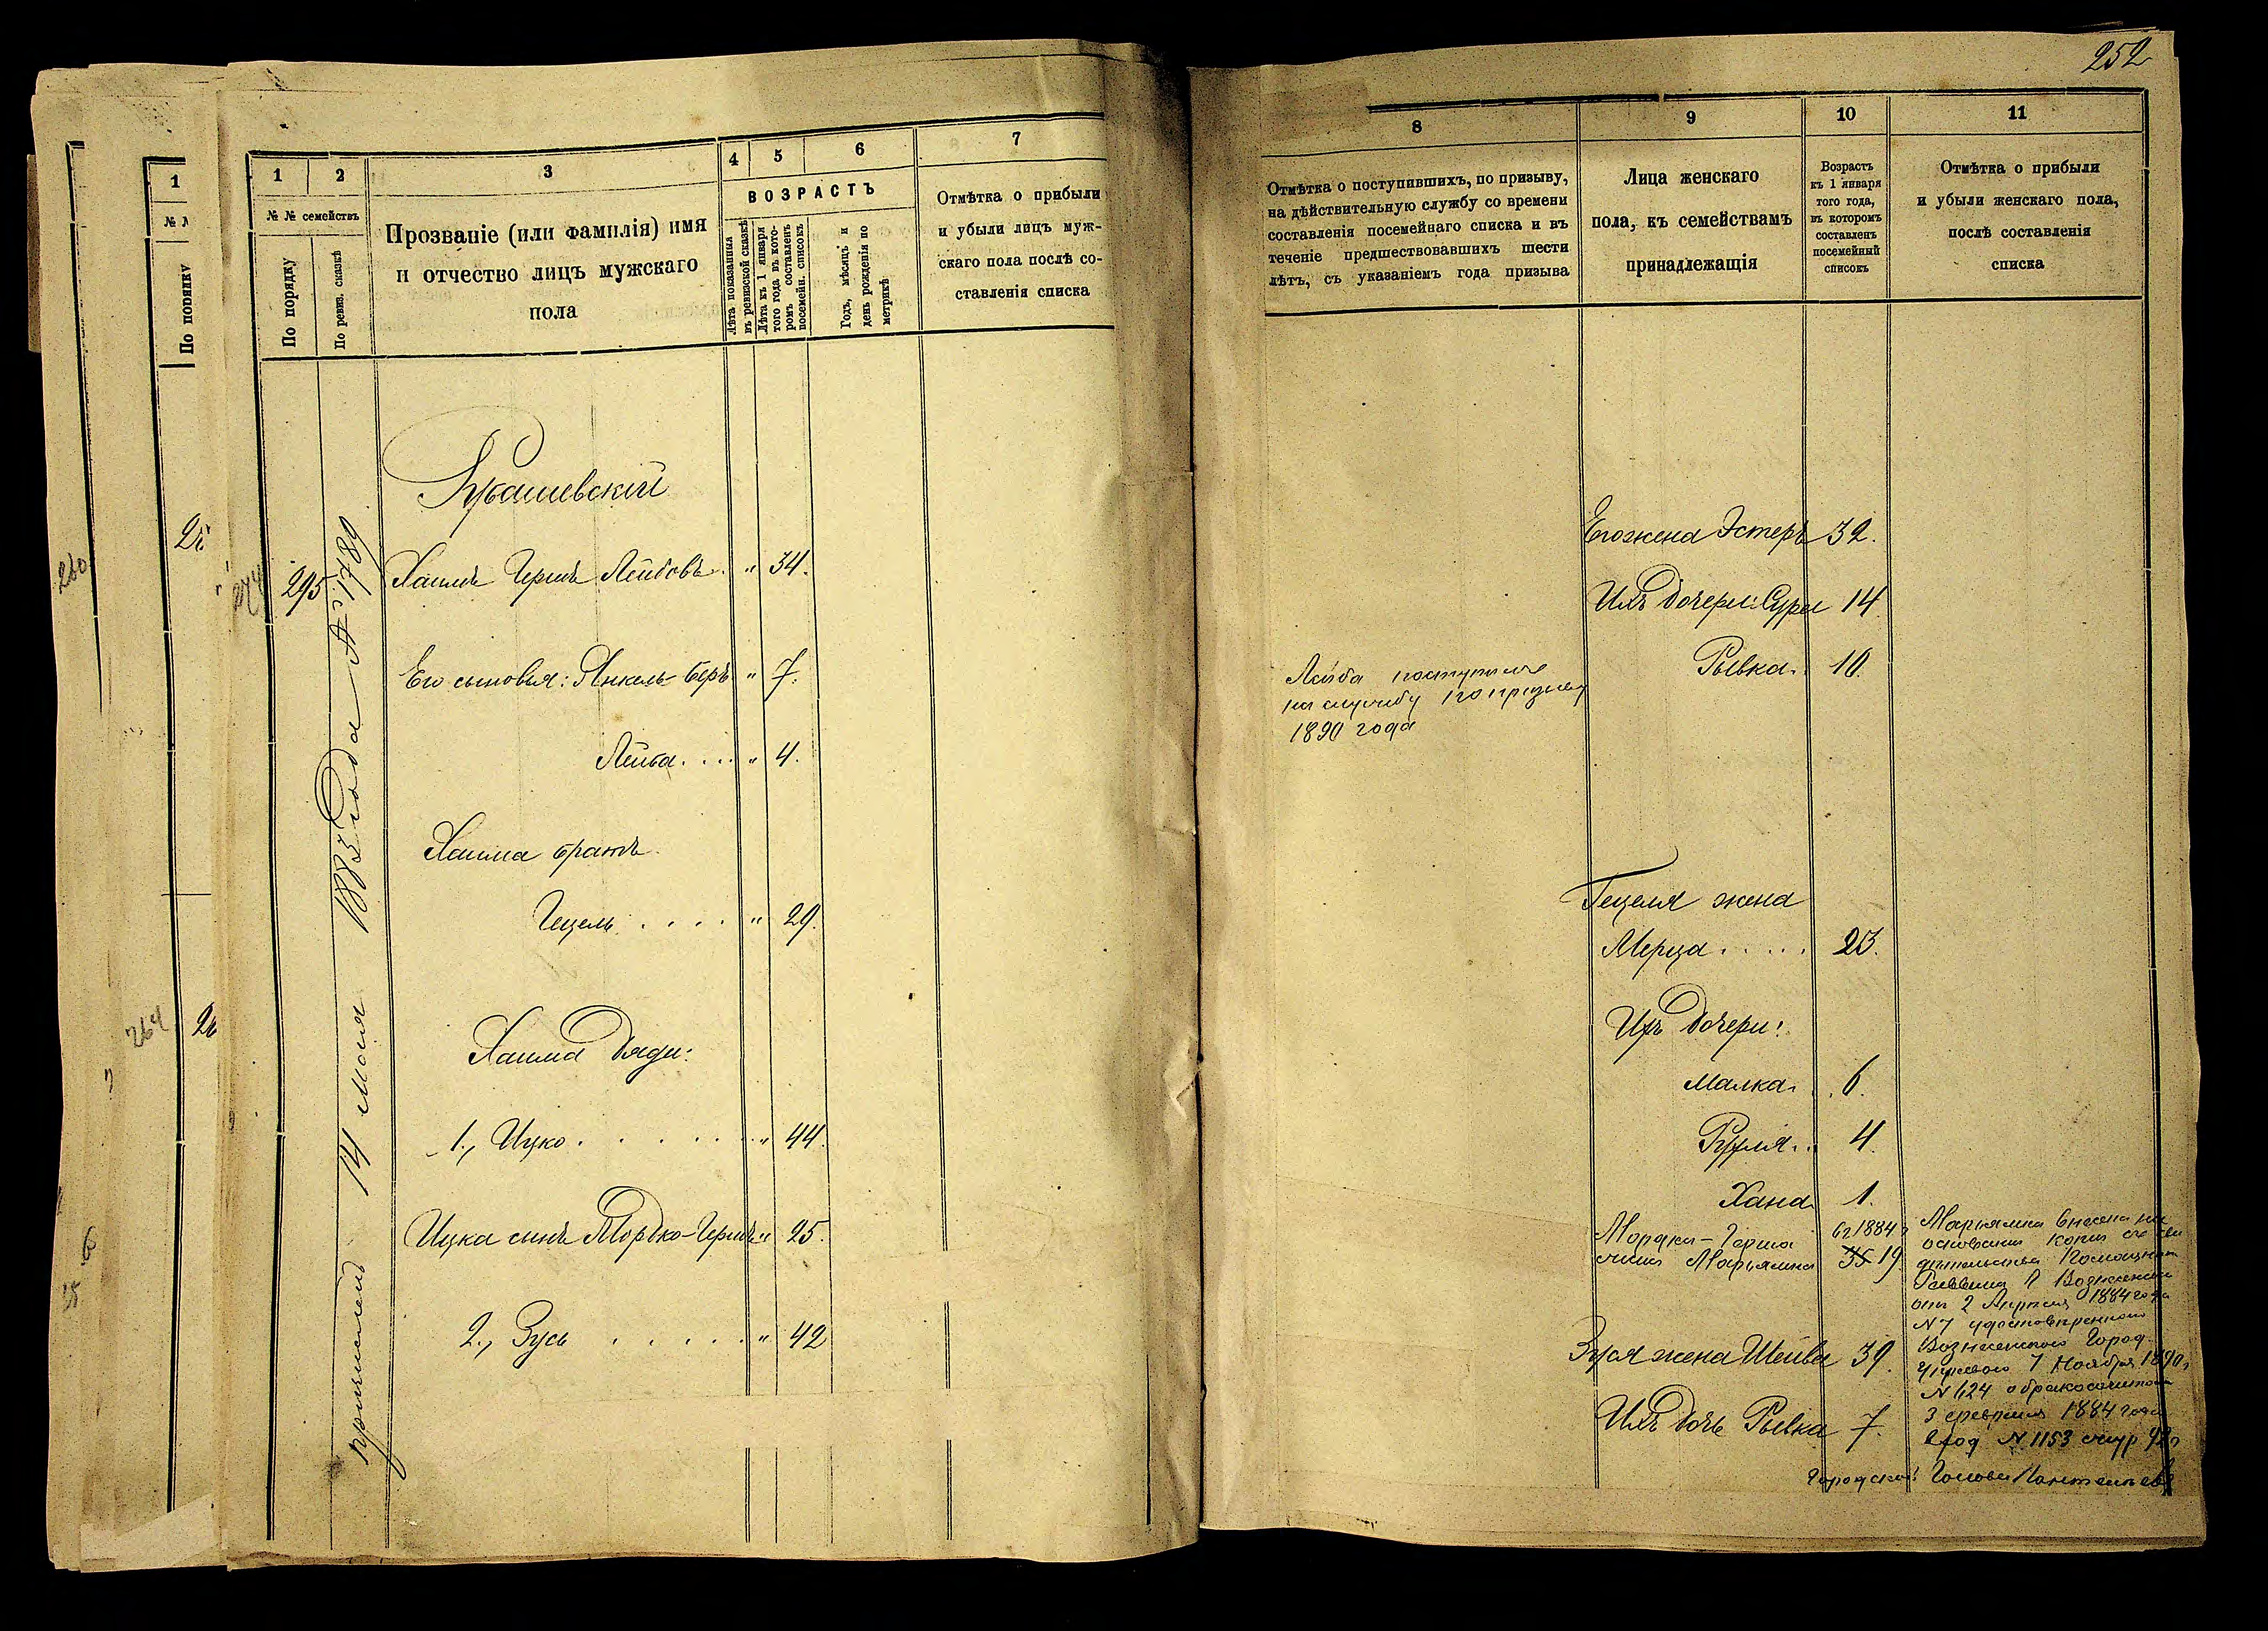 252
1
№ №
По порядку
260
264
274
1
2
3
4
5
6
7
№ № семействъ
По порядку
По ревиз. сказкѣ
Прозваніе (или фамилія) имя
и отчество лицъ мужскаго
пола
ВОЗРАСТЪ
Лѣта показанныя
въ ревизской сказкѣ
Лѣта къ 1 января
того года въ кото-
ромъ составленъ
посемейн. списокъ
Годъ, мѣсяцъ и
день рожденія по
метрикѣ
Отмѣтка о прибыли
и убыли лицъ муж-
скаго пола послѣ со-
ставленія списка
295
причисленъ 14 мая 1883 года № 1789
Хаимъ Гершъ Лейбовъ . " 34.
Его сыновья: Янкель-Беръ " 7.
Лейба . . . " 4.
Хаима братъ
Гецель . . . . " 29.
Хаима дяди:
1., Ицко . . . . . . " 44.
Ицка сынъ Мордко-Гершъ " 25.
2., Зусь . . . . . " 42
8
9
10
11
Отмѣтка о поступившихъ, по призыву,
на дѣйствительную службу со времени
составленія посемейнаго списка и въ
теченіе предшествовавшихъ шести
лѣтъ, съ указаніемъ года призыва
Лица женскаго
пола, къ семействамъ
принадлежащія
Возрастъ
къ 1 января
того года,
въ которомъ
составленъ
посемейный
списокъ
Отмѣтка о прибыли
и убыли женскаго пола,
послѣ составленія
списка
Его жена Эстеръ 32.
Ихъ дочери: Сура 14
Рывка . 10.
Лейба поступилъ
на службу по призыву
1890 года
Гецеля жена
Мерца . . . . . 23.
Ихъ дочери:
Малка . . 6.
Рухля . . 4.
Хана 1.
Мордки-Герша
жена Марьямна 19
въ 1884 г
Марьямна внесена на
основаніи копіи съ сви
дѣтельства Помощника
Раввина
отъ 2 Апрѣля 1884 года
№ 7 удостовѣренного
Вознесенскою Город.
Управою 7 Ноября 1890 г
№ 1124 о бракосочетаніи
3 февраля 1884 года
Вход № 1153
Зуся жена Шейва 39.
Ихъ дочь Рывка 7.
Городской Голова